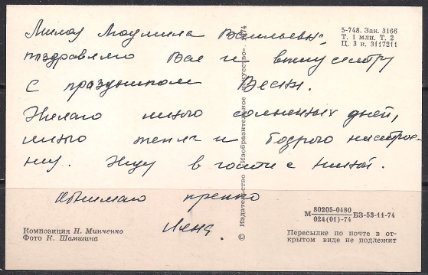 Милая Людмила Васильевна,
поздравляю Вас и вашу сестру
с праздником Весны.
Желаю много солнечных дней,
много тепла и бодрого настрое-
ния. Жду в гости с
Обнимаю крепко
Лена.
Композиция Н. Минченко
Фото К. Шамшина
© «Издательство «Изобразительное искусство». 1974
5-748. Зак. 3166
Т. 1 млн. Т. 2
Ц. 3 к. 3117211
М 80205-0480
024(01)-74 БЗ-53-11-74
Пересылке по почте в от-
крытом виде не подлежит